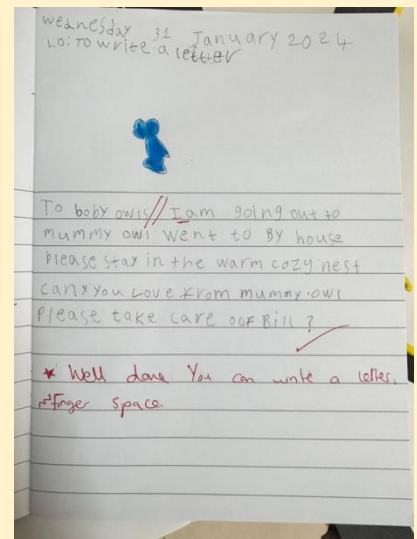 Wednesday 31 January 2024
LO: To write a letter
To baby owls // I am going out to
mummy owl went to By house
Please stay in the warm cozy nest
canx you Love from mummy owl
Please take care oof Bill ?
★ Well done You can write a letter.
finger space.